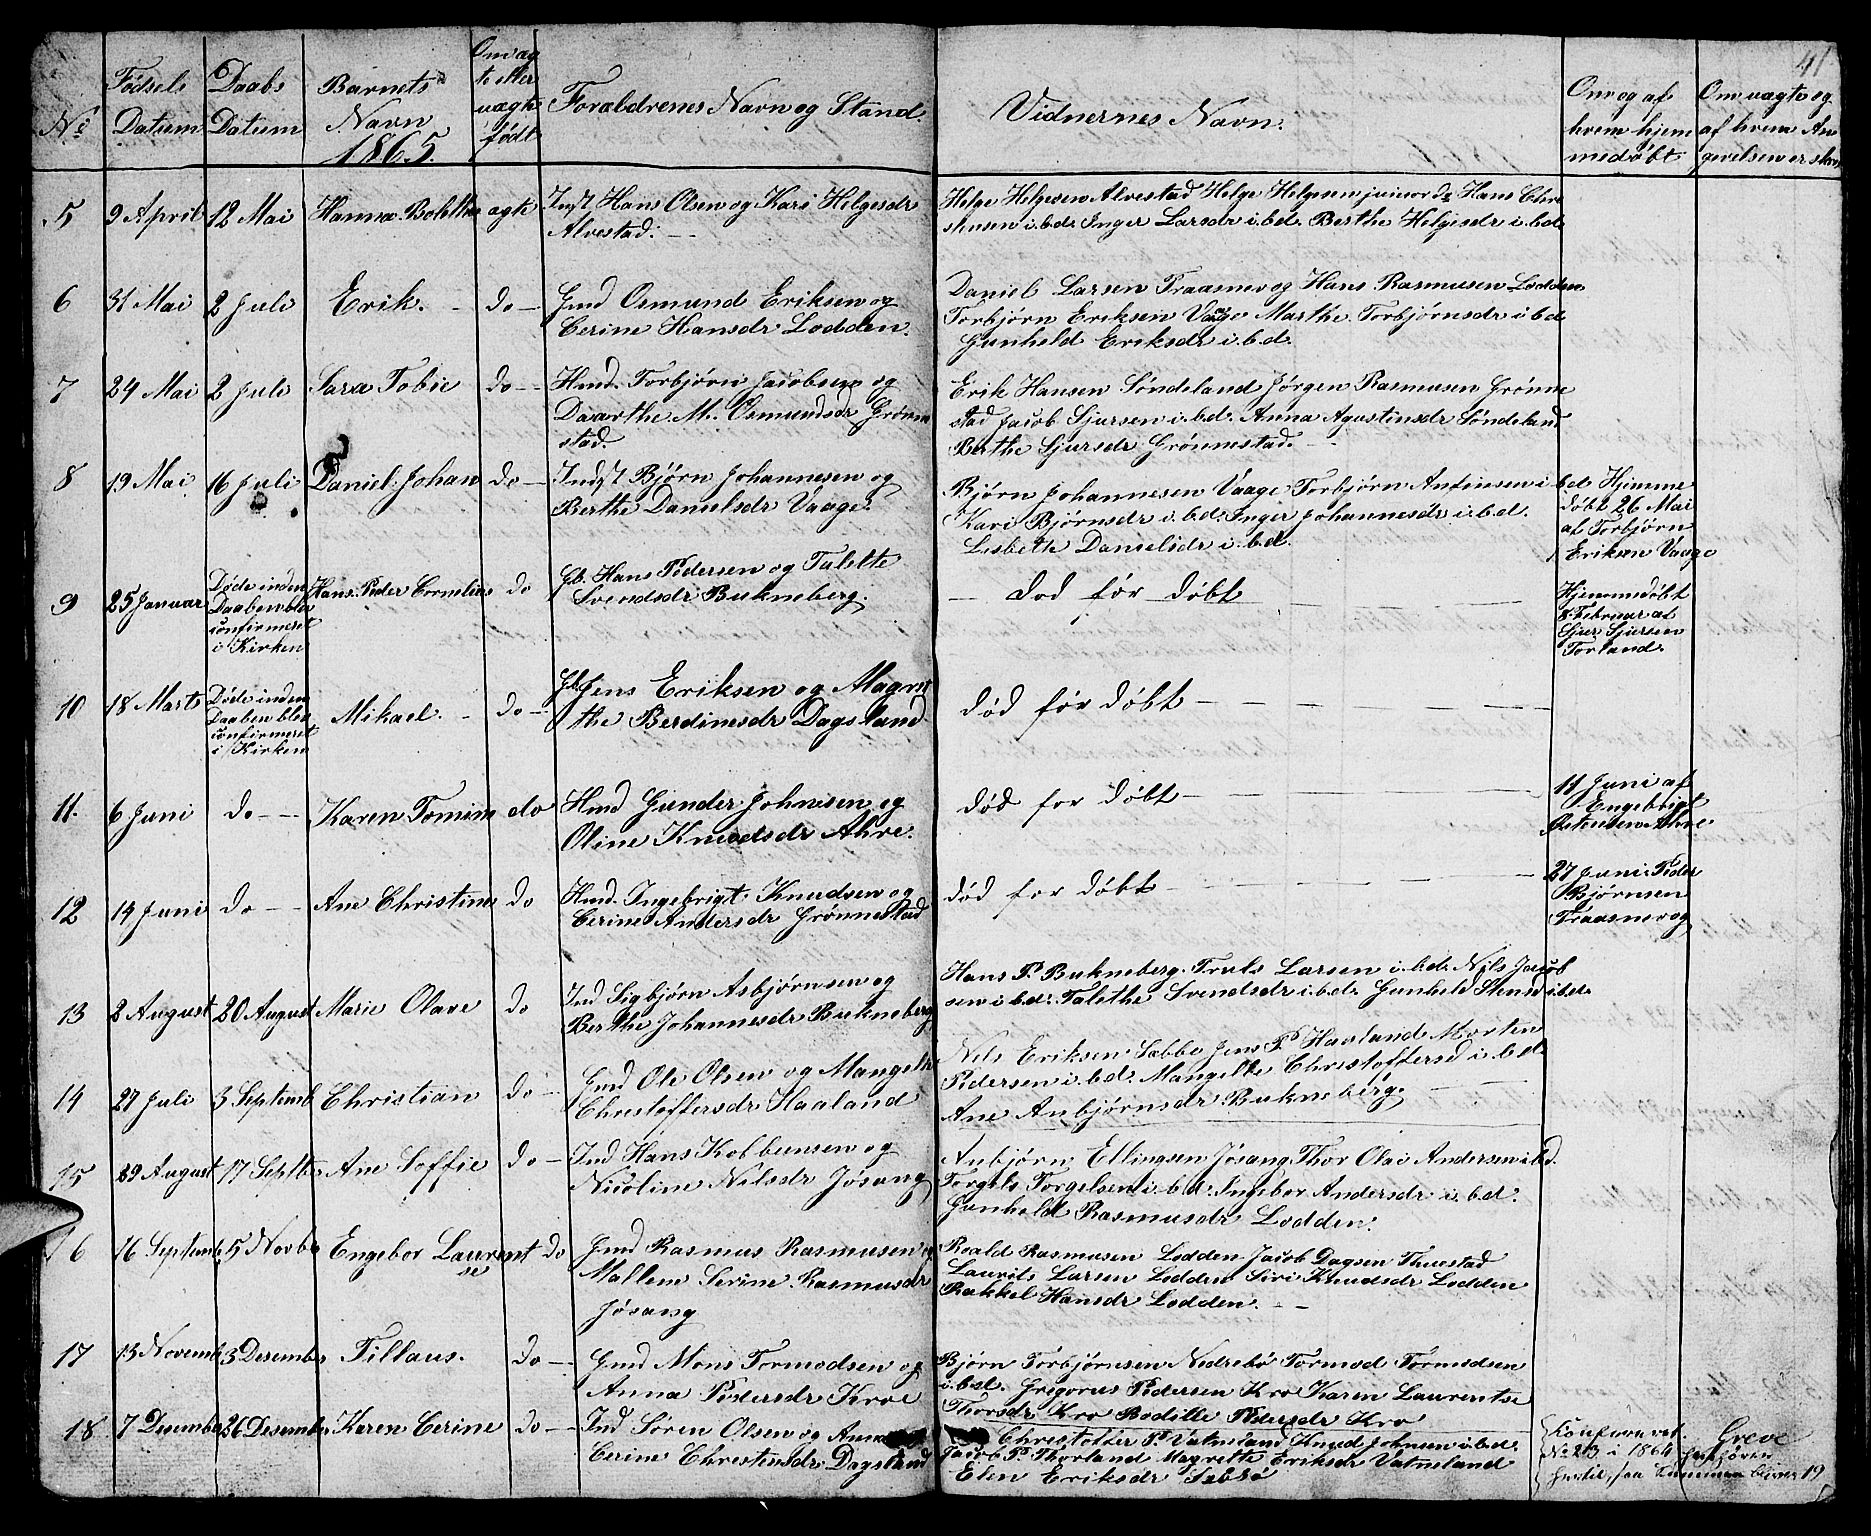 41
No
Fødsels Datum
Daabs Datum
Barnets Navn
1865
Om æg
te eller
uægte
født
Forældrenes Navn og Stand
Vidnernes Navn.
Om og af
hvem hjem
medøbt
Om vægte og
af hvem An
givelsen er skeet
5 9 April 12 Mai Hanna Bolette ægte
Indst Hans Olsen og Kari Helgesdr
Alvestad. —
Helge Helgesen Alvestad Helge Helgesen junior do Hans Chre
stensen i.b.d. Inger Larsdr i.b.d. Berthe Helgesdr i.b.d.
6 31 Mai 2 Juli Erik. - do -
Gmd Osmund Eriksen og
Cerine Hansdr Lodden.
Daniel Larsen Traasnevog Hans Rasmusen Lodden
Torbjørn Eriksen Vaage Marthe Torbjørnsdr i.b.d
Gunheld Eriksdr i.b.d.
7 24 Mai 2 Juli Sara Tobie do -
Hmd. Torbjørn Jacobsen og
Daarthe M. Osmundsdr Grønne
stad.
Erik Hansen Søndeland Jørgen Rasmusen Grønne
stad Jacob Sjursen i.b.d. Anna Agustinsdr Søndeland
Berthe Sjursdr Grønnestad. -
8 19 Mai 16 Juli Daniel Johan do -
Indst Bjørn Johannesen og
Berthe Danielsdr Vaage.
Bjørn Johannesen Vaage Torbjørn Anfinsen i.b.d
Kari Bjørnsdr i.b.d. Inger Johannesdr i.b.d.
Lisbeth Danielsdr i.b.d.
Hjemme
døbt 26 Mai
af Torbjørn
Eriksen Vaage
9 25 Januar
Døde inden
Daaben blev
confirmeret
i Kirken
Hans Peder Cornelius do
Gb. Hans Pedersen og Talette
Svendsdr Bukneberg.
— død før døbt
Hjemmedøbt
8 Februar af
Sjur Sjursen
Torland.
10 18 Marts
Døde inden
Daaben blev
confirmeret
i Kirken
Mikael. - do -
Gb. Jens Eriksen og Magret
the Berdinesdr Dagsland
død før døbt — — —
11. 6 Juni do — — Karen Tomine do
Hmd Gunder Johnsen og
Oline Knudsdr Ahre.
død før døbt — —
11 Juni af
Engebrigt
Østensen Ahre
12 14 Juni do — — Ane Christine do
Hmd. Ingebrigt Knudsen og
Cerine Andersdr Grønnestad
død før døbt —
27 Juni Peder
Bjørnsen
Traasnevog
13 2 August 20 August Marie Olave do
Ind Sigbjørn Asbjørnsen og
Berthe Johannesdr Bukneberg
Hans P. Bukneberg. Truls Larsen i.b.d. Nils Jacob
sen i.b.d. Talethe Svendsdr i.b.d. Gunheld Stensd i.b.d.
14 27 Juli 3 Septemb Christian do -
Gmd Ole Olsen og Mangelte
Chrestoffersdr Haaland
Nels Eriksen Sæbbe Jens P. Havland Morten
Pedersen i.b.d. Mangelte Chrestoffersd i.b.d.
Ane Anbjørnsdr Bukneberg
15 29 August 17 Septbe Ane Soffie do -
Ind Hans Kolbensen og
Nicoline Nilsdr Jøsang
Anbjørn Ellingsen Jøsang Thor Olai Andersen i.b.d.
Torgels Torgelsen i.b.d. Ingebor Andersdr i.b.d.
Gunheld Rasmusdr Lodden.
16 16 Septembe 5 Novbe Engebor Laurent
se
do
Gmd Rasmus Rasmusen og
Mallene Serine Rasmusdr
Jøsang
Roald Rasmusen Lodden Jacob Dagsen Thuestad
Laurits Larsen Lodden Siri Knudsdr Lodden
Rakkel Hansdr Lodden. —
17 13 Novemb 3 Desember Tillaus. do -
Gmd Mons Tormodsen og
Anna Pedersdr Kroe
Bjørn Torbjørnsen Nedrebø Tormod Tormodsen
i.b.d. Gregorus Pedersen Kro Karen Laurentse
Thorsdr Kro Bodille Pedersdr Kro
18 7 Desember 26 Desember Karen Cerine do -
Ind Søren Olsen og Anne
Cerine Chrestensdr Dagsland
Chrestoffer P. Vatneland Knud Johnsen i.b.d.
Jacob P. Thorland Magrethe Eriksdr Vatneland
Elen Eriksdr Sæbbø
Confirmeret
No 23 i 1864
hertil, saa Summen bliver 19
Greve